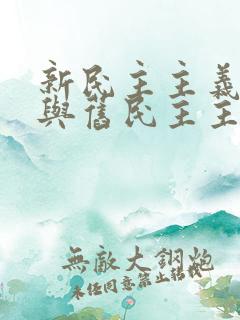 新民主主義
與舊民主主
無敵大鋼炮
未經同意禁止轉載